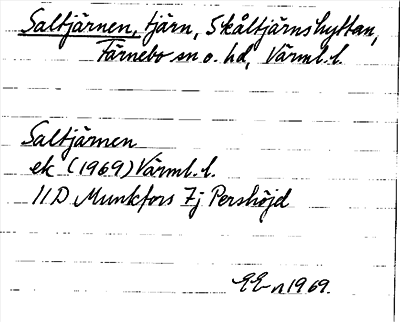 Saltjärnen, tjärn, Skåltjärnshyttan,
Färnebo sn o. hd, Värml. l.
Saltjärnen
ek (1969) Värml. l.
11D Munkfors 7j Pershöjd
EE-n 1969.